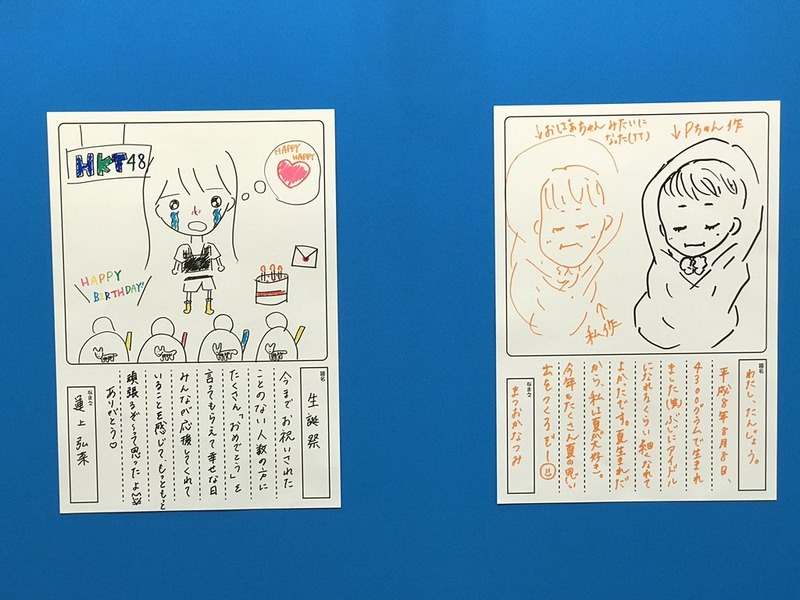 HKT48
HAPPY
HAPPY
HAPPY
BIRTHDAY!
題名
生誕祭
今までお祝いされた
ことのない人数の方に
たくさん「おめでとう」を
言ってもらえて幸せな日
みんなが応援してくれて
いることを感じて、もっともっと
頑張るぞ〜て思ったよ
ありがとう♡
なまえ
運上弘菜
↓おばあちゃんみたいに
なった(TT)
↓Pちゃん作
↑
私作
題名
わたし、たんじょう。
平成8年8月8日、
4300グラムで生まれ
ました(笑)ぶじにアイドル
になれるくらい細くなれて
よかたです。夏生まれだ
から、私は夏が大好き。
今年もたくさん夏の思い
出をつくるぞー!!
なまえ
まつおかなつみ